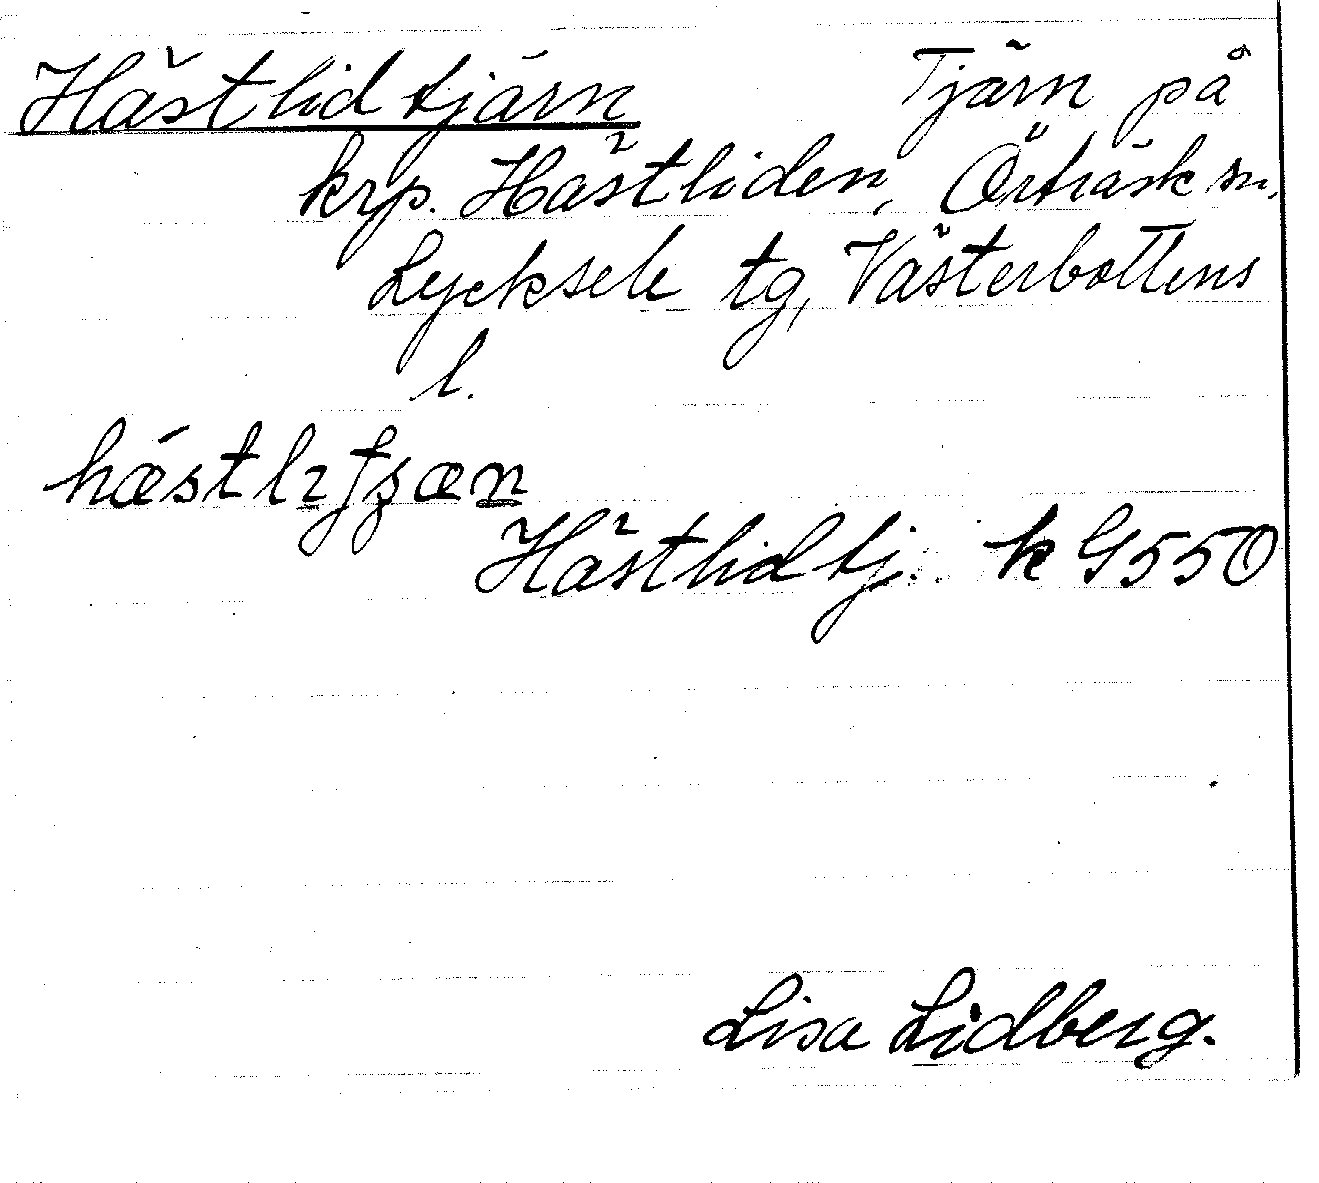 Hästlidtjärn Tjärn på
krp. Hästliden, Örträsk sn,
Lycksele tg, Västerbottens
l.
Hästlidtj. k G550
Lisa Lidberg.